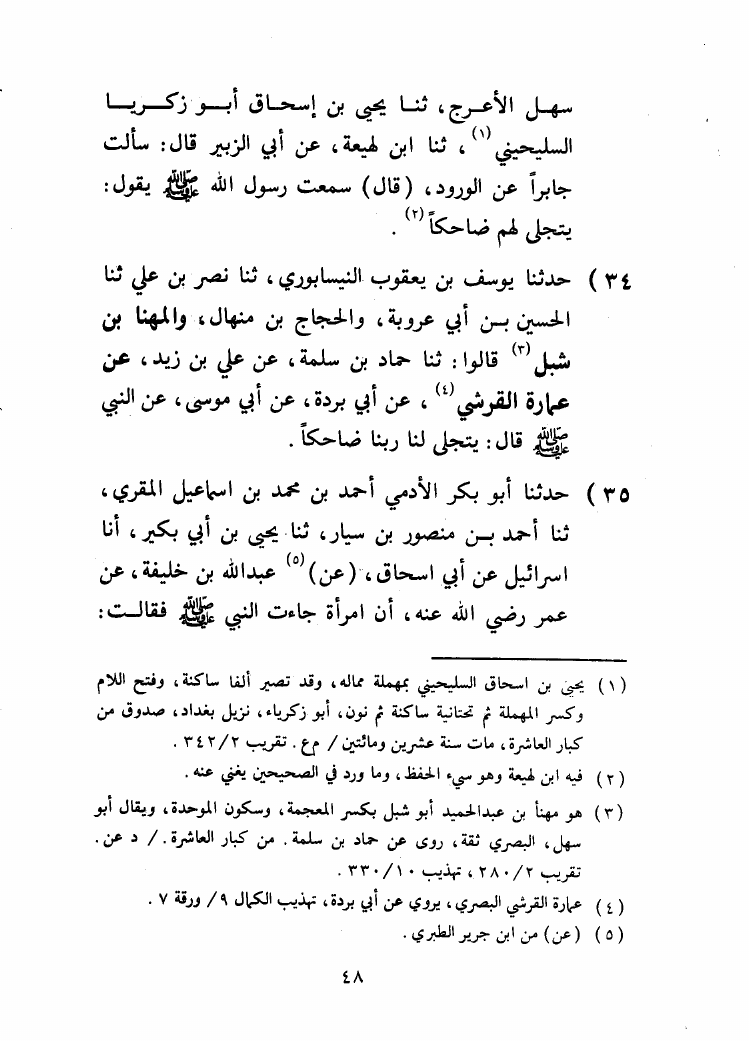 سهل الأعرج، ثنا يحيى بن إسحاق أبو زكريا
السليحيني(١)، ثنا ابن لهيعة، عن أبي الزبير قال: سألت
جابراً عن الورود، (قال) سمعت رسول الله ﷺ يقول:
يتجلى لهم ضاحكاً(٢).
٣٤) حدثنا يوسف بن يعقوب النيسابوري، ثنا نصر بن علي ثنا
الحسين بن أبي عروبة، والحجاج بن منهال، والمهنا بن
شبل(٣) قالوا: ثنا حماد بن سلمة، عن علي بن زيد، عن
عمارة القرشي(٤)، عن أبي بردة، عن أبي موسى، عن النبي
ﷺ قال: يتجلى لنا ربنا ضاحكاً.
٣٥) حدثنا أبو بكر الأدمي أحمد بن محمد بن اسماعيل المقري،
ثنا أحمد بن منصور بن سيار، ثنا يحيى بن أبي بكير، أنا
اسرائيل عن أبي اسحاق، (عن)(٥) عبدالله بن خليفة، عن
عمر رضي الله عنه، أن امرأة جاءت النبي ﷺ فقالت:
(١) يحيى بن اسحاق السليحيني بمهملة ممالة، وقد تصير ألفا ساكنة، وفتح اللام
وكسر المهملة ثم تحتانية ساكنة ثم نون، أبو زكرياء، نزيل بغداد، صدوق من
كبار العاشرة، مات سنة عشرين ومائتين / م ع. تقريب ٣٤٢/٢.
(٢) فيه ابن لهيعة وهو سيء الحفظ، وما ورد في الصحيحين يغني عنه.
(٣) هو مهنأ بن عبدالحميد أبو شبل بكسر المعجمة، وسكون الموحدة، ويقال أبو
سهل، البصري ثقة، روى عن حماد بن سلمة. من كبار العاشرة. / د عن.
تقريب ٢٨٠/٢، تهذيب ٣٣٠/١٠.
(٤) عمارة القرشي البصري، يروي عن أبي بردة، تهذيب الكمال ٩/ ورقة ٧.
(٥) (عن) من ابن جرير الطبري.
٤٨